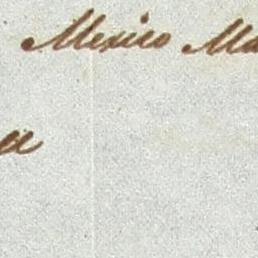 Mexico Ma